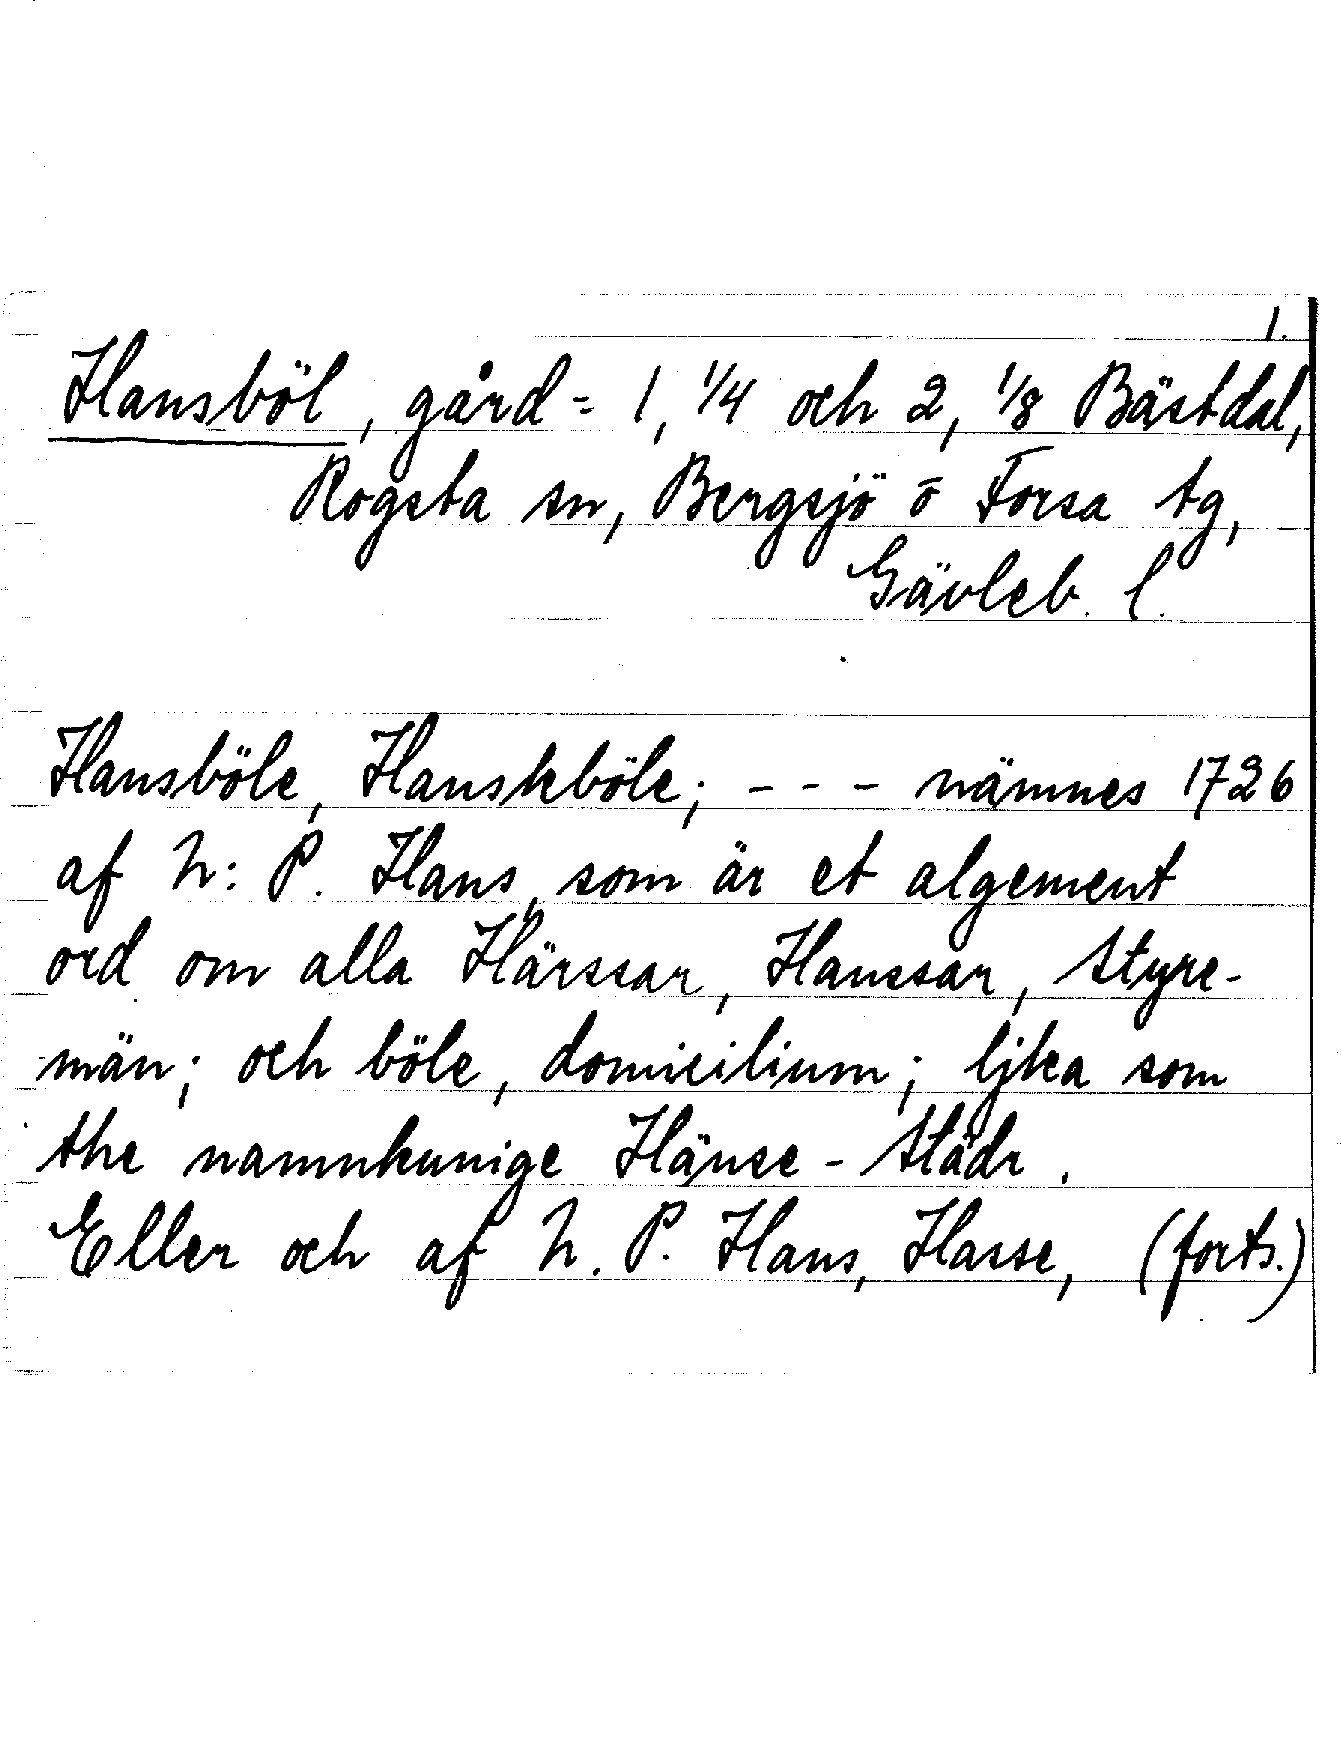 1.
Hansböl, gård = 1, 1/4 och 2, 1/8 Bästdal,
Rogsta sn, Bergsjö o Forsa tg,
Gävleb. l.
Hansböle, Hanskböle; - - - nämnes 1726
af N: P. Hans, som är et algement
ord om alla Härssar, Hanssar, Styre-
män; och böle, domicilium; ljka som
the namnkunige Hänse-Städr.
Eller och af N. P. Hans, Hasse, (forts.)